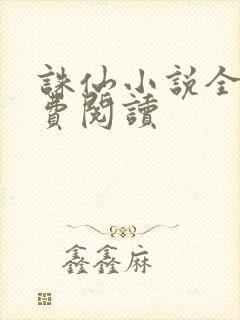 誅仙小說全
費閱讀
鑫鑫麻